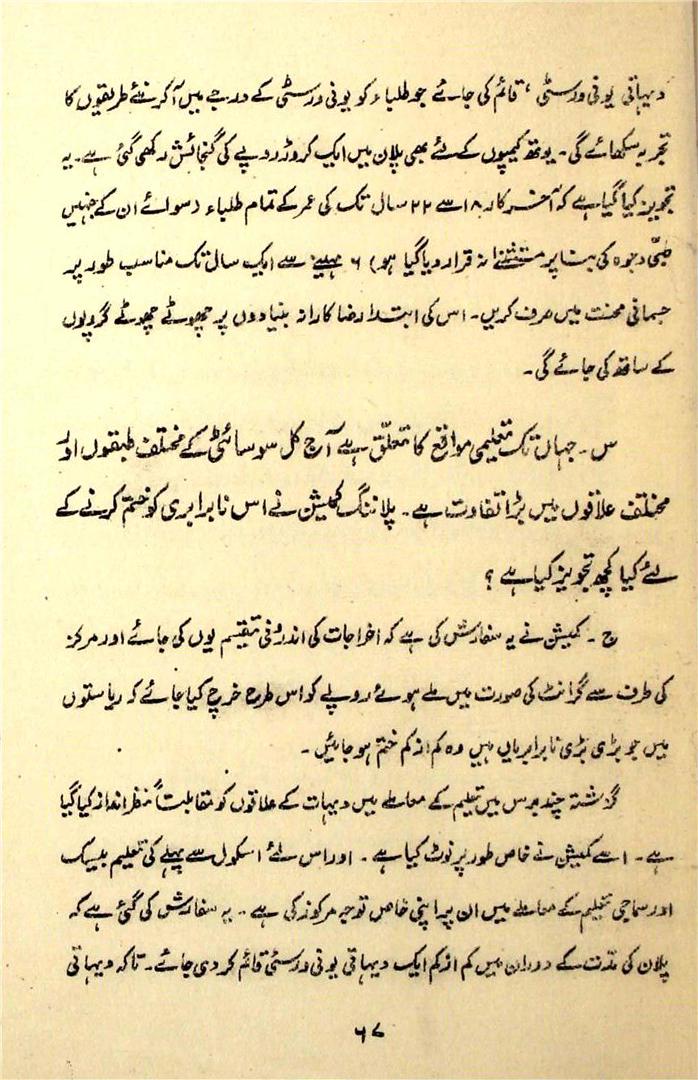 دیہاتی یونی ورسٹی، قائم کی جائے جو طلباء کو یونی ورسٹی کے درجے میں آکر نئے طریقوں کا
تجربہ سکھائے گی۔ یوتھ کیمپوں کے لئے بھی پلان میں ایک کروڑ روپے کی گنجائش رکھی گئی ہے۔ یہ
تجویز کیا گیا ہے کہ آخر کار ۱۸ سے ۲۲ سال تک کی عمر کے تمام طلباء (سوائے ان کے جنہیں
طبّی وجوہ کی بنا پر مستثنےٰ نہ قرار دیا گیا ہو) ۶ مہینے سے ایک سال تک مناسب طور پر
جسمانی محنت میں صرف کریں۔ اس کی ابتدا رضاکارانہ بنیادوں پر چھوٹے چھوٹے گروپوں
کے ساتھ کی جائے گی۔
س۔ جہاں تک تعلیمی مواقع کا تعلّق ہے آج کل سوسائٹی کے مختلف طبقوں اور
مختلف علاقوں میں بڑا تفاوت ہے۔ پلاننگ کمیشن نے اس نابرابری کو ختم کرنے کے
لئے کیا کچھ تجویز کیا ہے؟
ج۔ کمیشن نے یہ سفارش کی ہے کہ اخراجات کی اندرونی تقسیم یوں کی جائے اور مرکز
کی طرف سے گرانٹ کی صورت میں ملے ہوئے روپے کو اس طرح خرچ کیا جائے کہ ریاستوں
میں جو بڑی بڑی نابرابریاں ہیں وہ کم از کم ختم ہو جائیں۔
گزشتہ چند برس میں تعلیم کے معاملے میں دیہات کے علاقوں کو مقابلتاً نظر انداز کیا گیا
ہے۔ اسے کمیشن نے خاص طور پر نوٹ کیا ہے۔ اور اس لئے اسکول سے پہلے کی تعلیم بیسک
اور سماجی تعلیم کے معاملے میں ان پر اپنی خاص توجہ مرکوز کی ہے۔ یہ سفارش کی گئی ہے کہ
پلان کی مدّت کے دوران میں کم از کم ایک دیہاتی یونی ورسٹی قائم کر دی جائے۔ تاکہ دیہاتی
۶۷